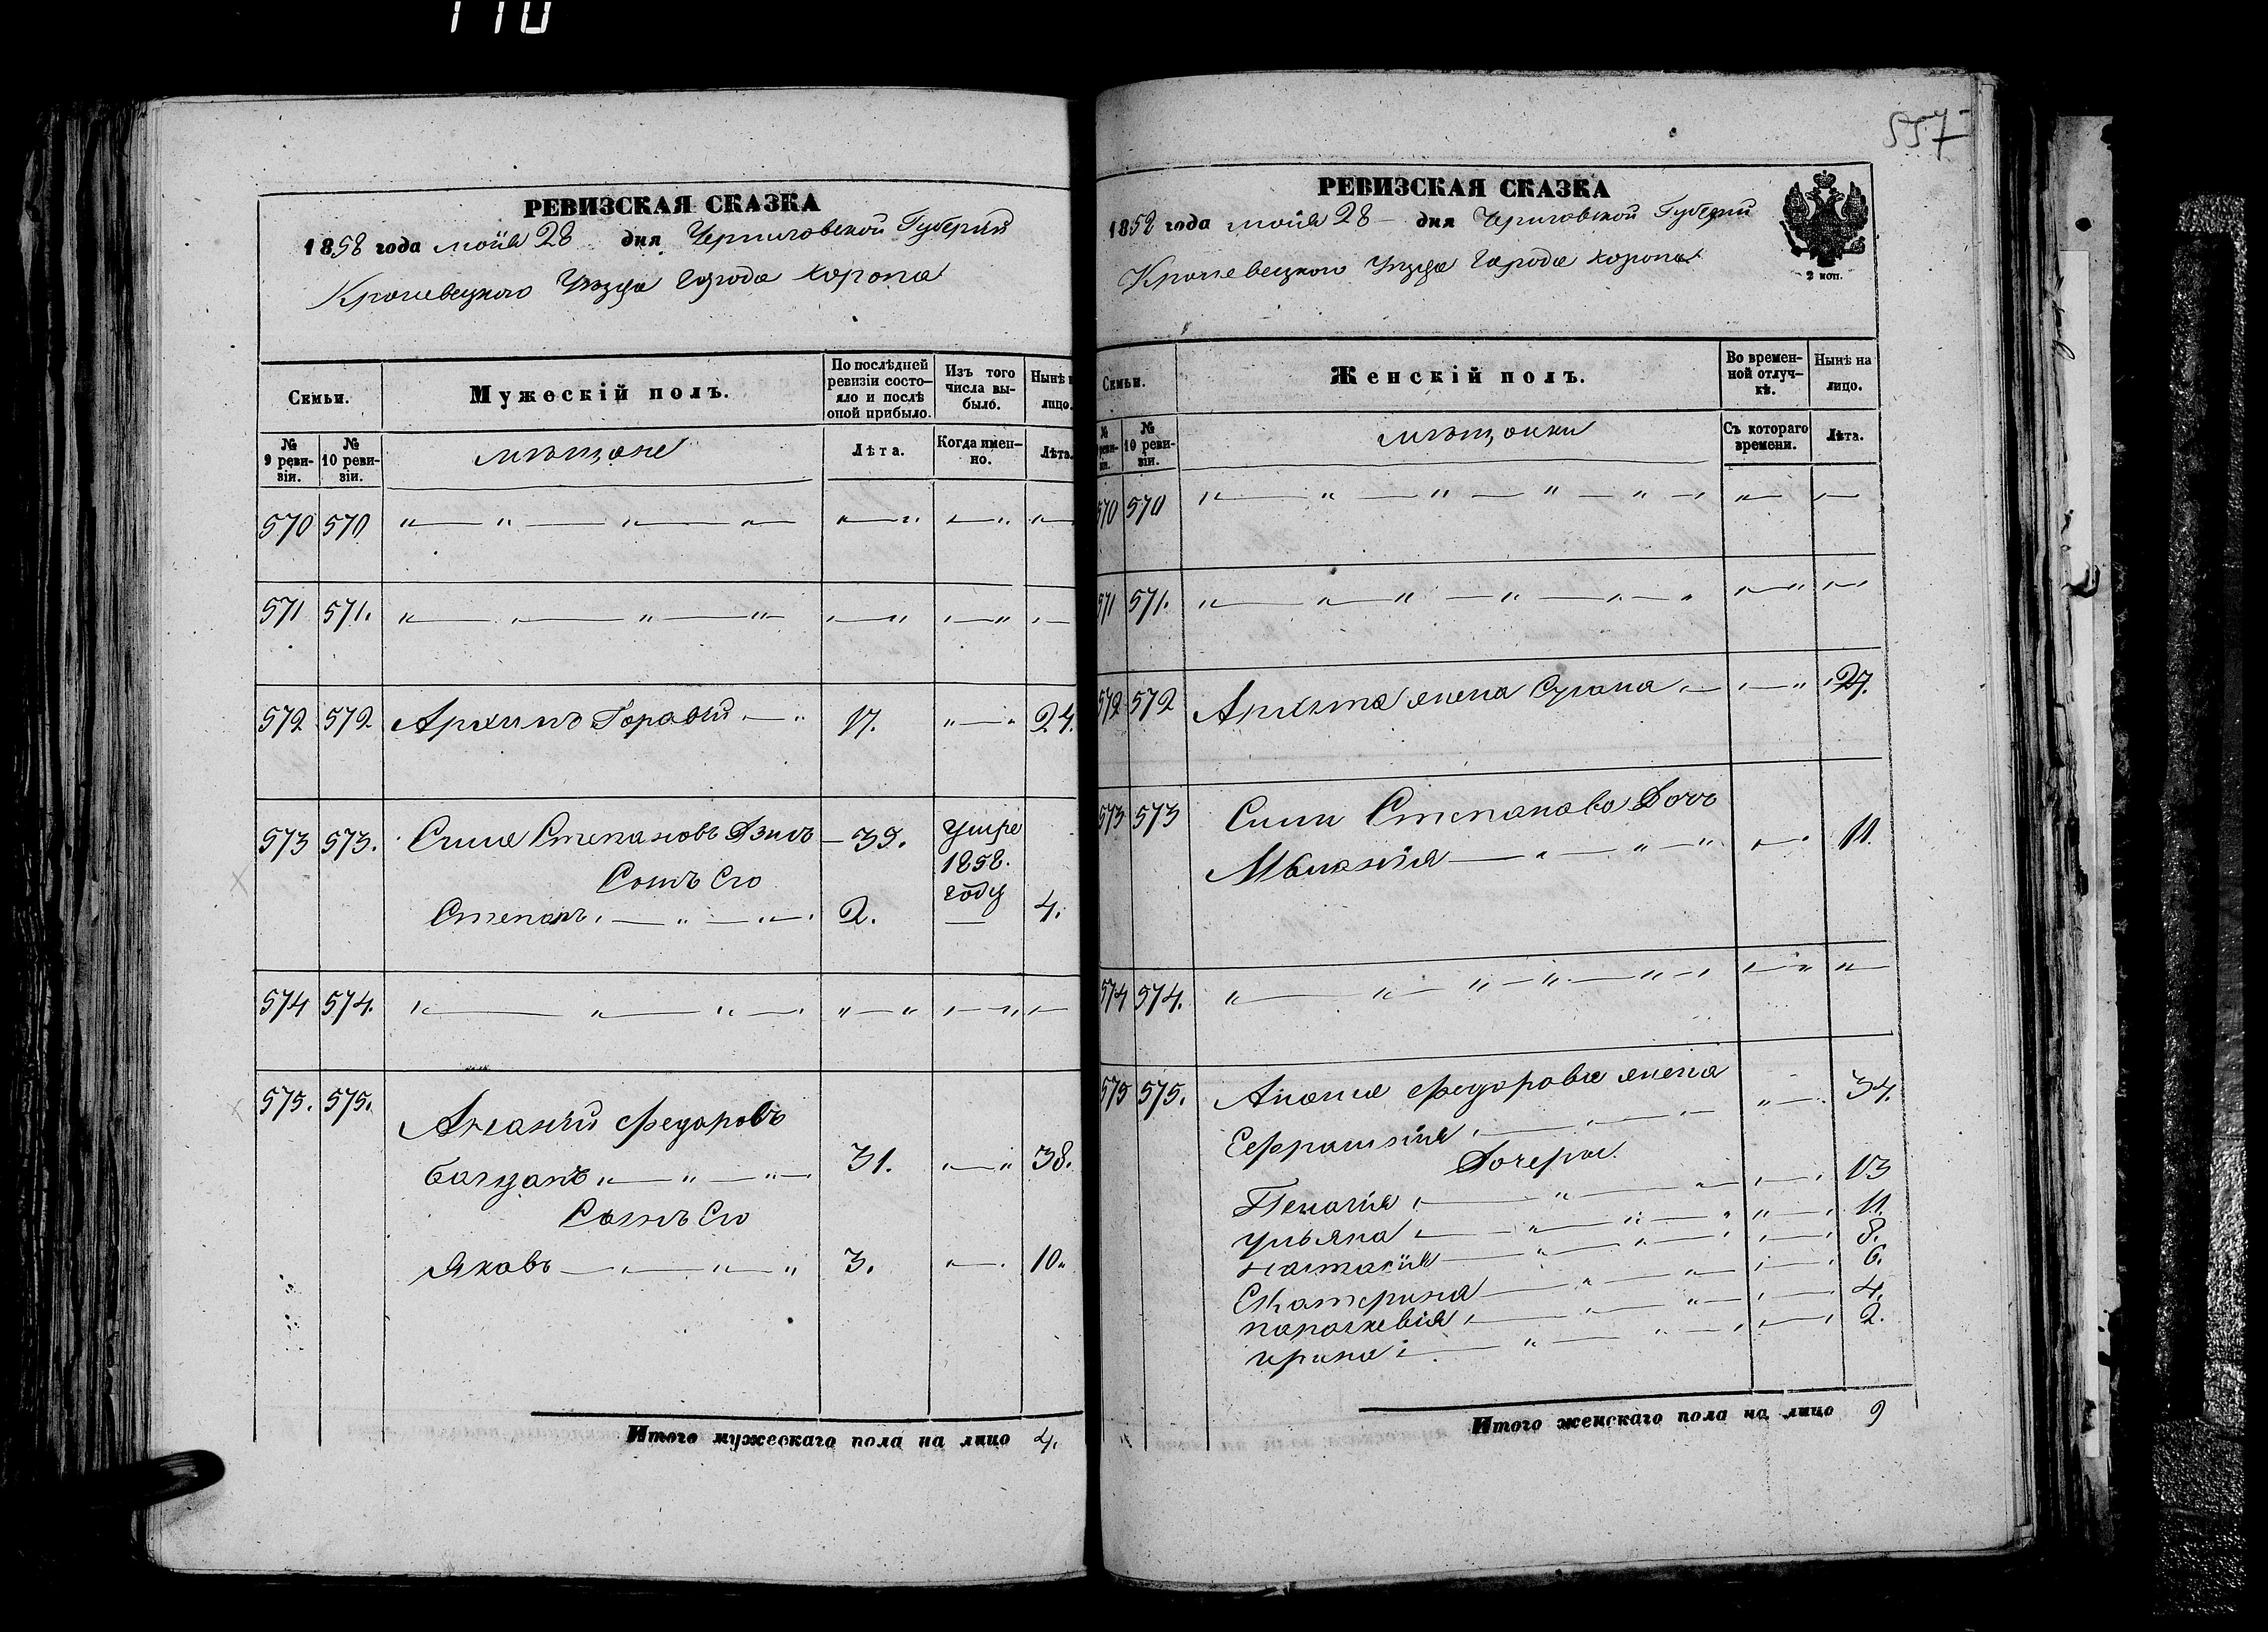 110
РЕВИЗСКАЯ СКАЗКА
1858 года моія 28 дня Черниговской Губерніи
Кролевецкого Уѣзда Города Коропа
Семьи.
Мужескій полъ.
По послѣдней ревизіи состояло и послѣ оной прибыло.
Изъ того числа выбыло.
Нынѣ
лицо.
№ 9 ревизіи.
№ 10 ревизіи.
мѣщане
Лѣта.
Когда именно.
Лѣта.
570 570 " — " — " — "
571 571. " — " — " — "
572 572. Архипъ 17. " — " 24.
573 573. Сила Степановъ — 39. умре 1858. году
Сынъ Его
Степанъ 2. — 4.
574 574. " — " — " — "
575. 575. Ананій Федоровъ
Богданъ " — " — " 31. " — " 38.
Сынъ Его
Яковъ — " — " 3. " — 10.
Итого мужескаго пола на лицо 4.
557
РЕВИЗСКАЯ СКАЗКА
1858 года моія 28 дня Черниговской Губерніи
Кролевецкого Уѣзда Города Коропа
2 коп.
Семьи.
Женскій полъ.
Во временной отлучкѣ.
Нынѣ на лицо.
№ 10 ревизіи.
мѣщанки
Съ котораго времени.
Лѣта.
570 570 " — " — " — "
571 571. " — " — " — "
572 572 Архипа жена 27.
573 573 Силы Степанова Дочь
Меланія — " — " 11.
574 574. " — " — " — "
575 575. Анания Федорова жена
Ефросинія " — " 34.
Дочери
Пелагія 13
Ульяна 11.
Настасія 8.
Екатерина 6.
Параскевія 4.
Ирина 2.
Итого женскаго пола на лицо 9